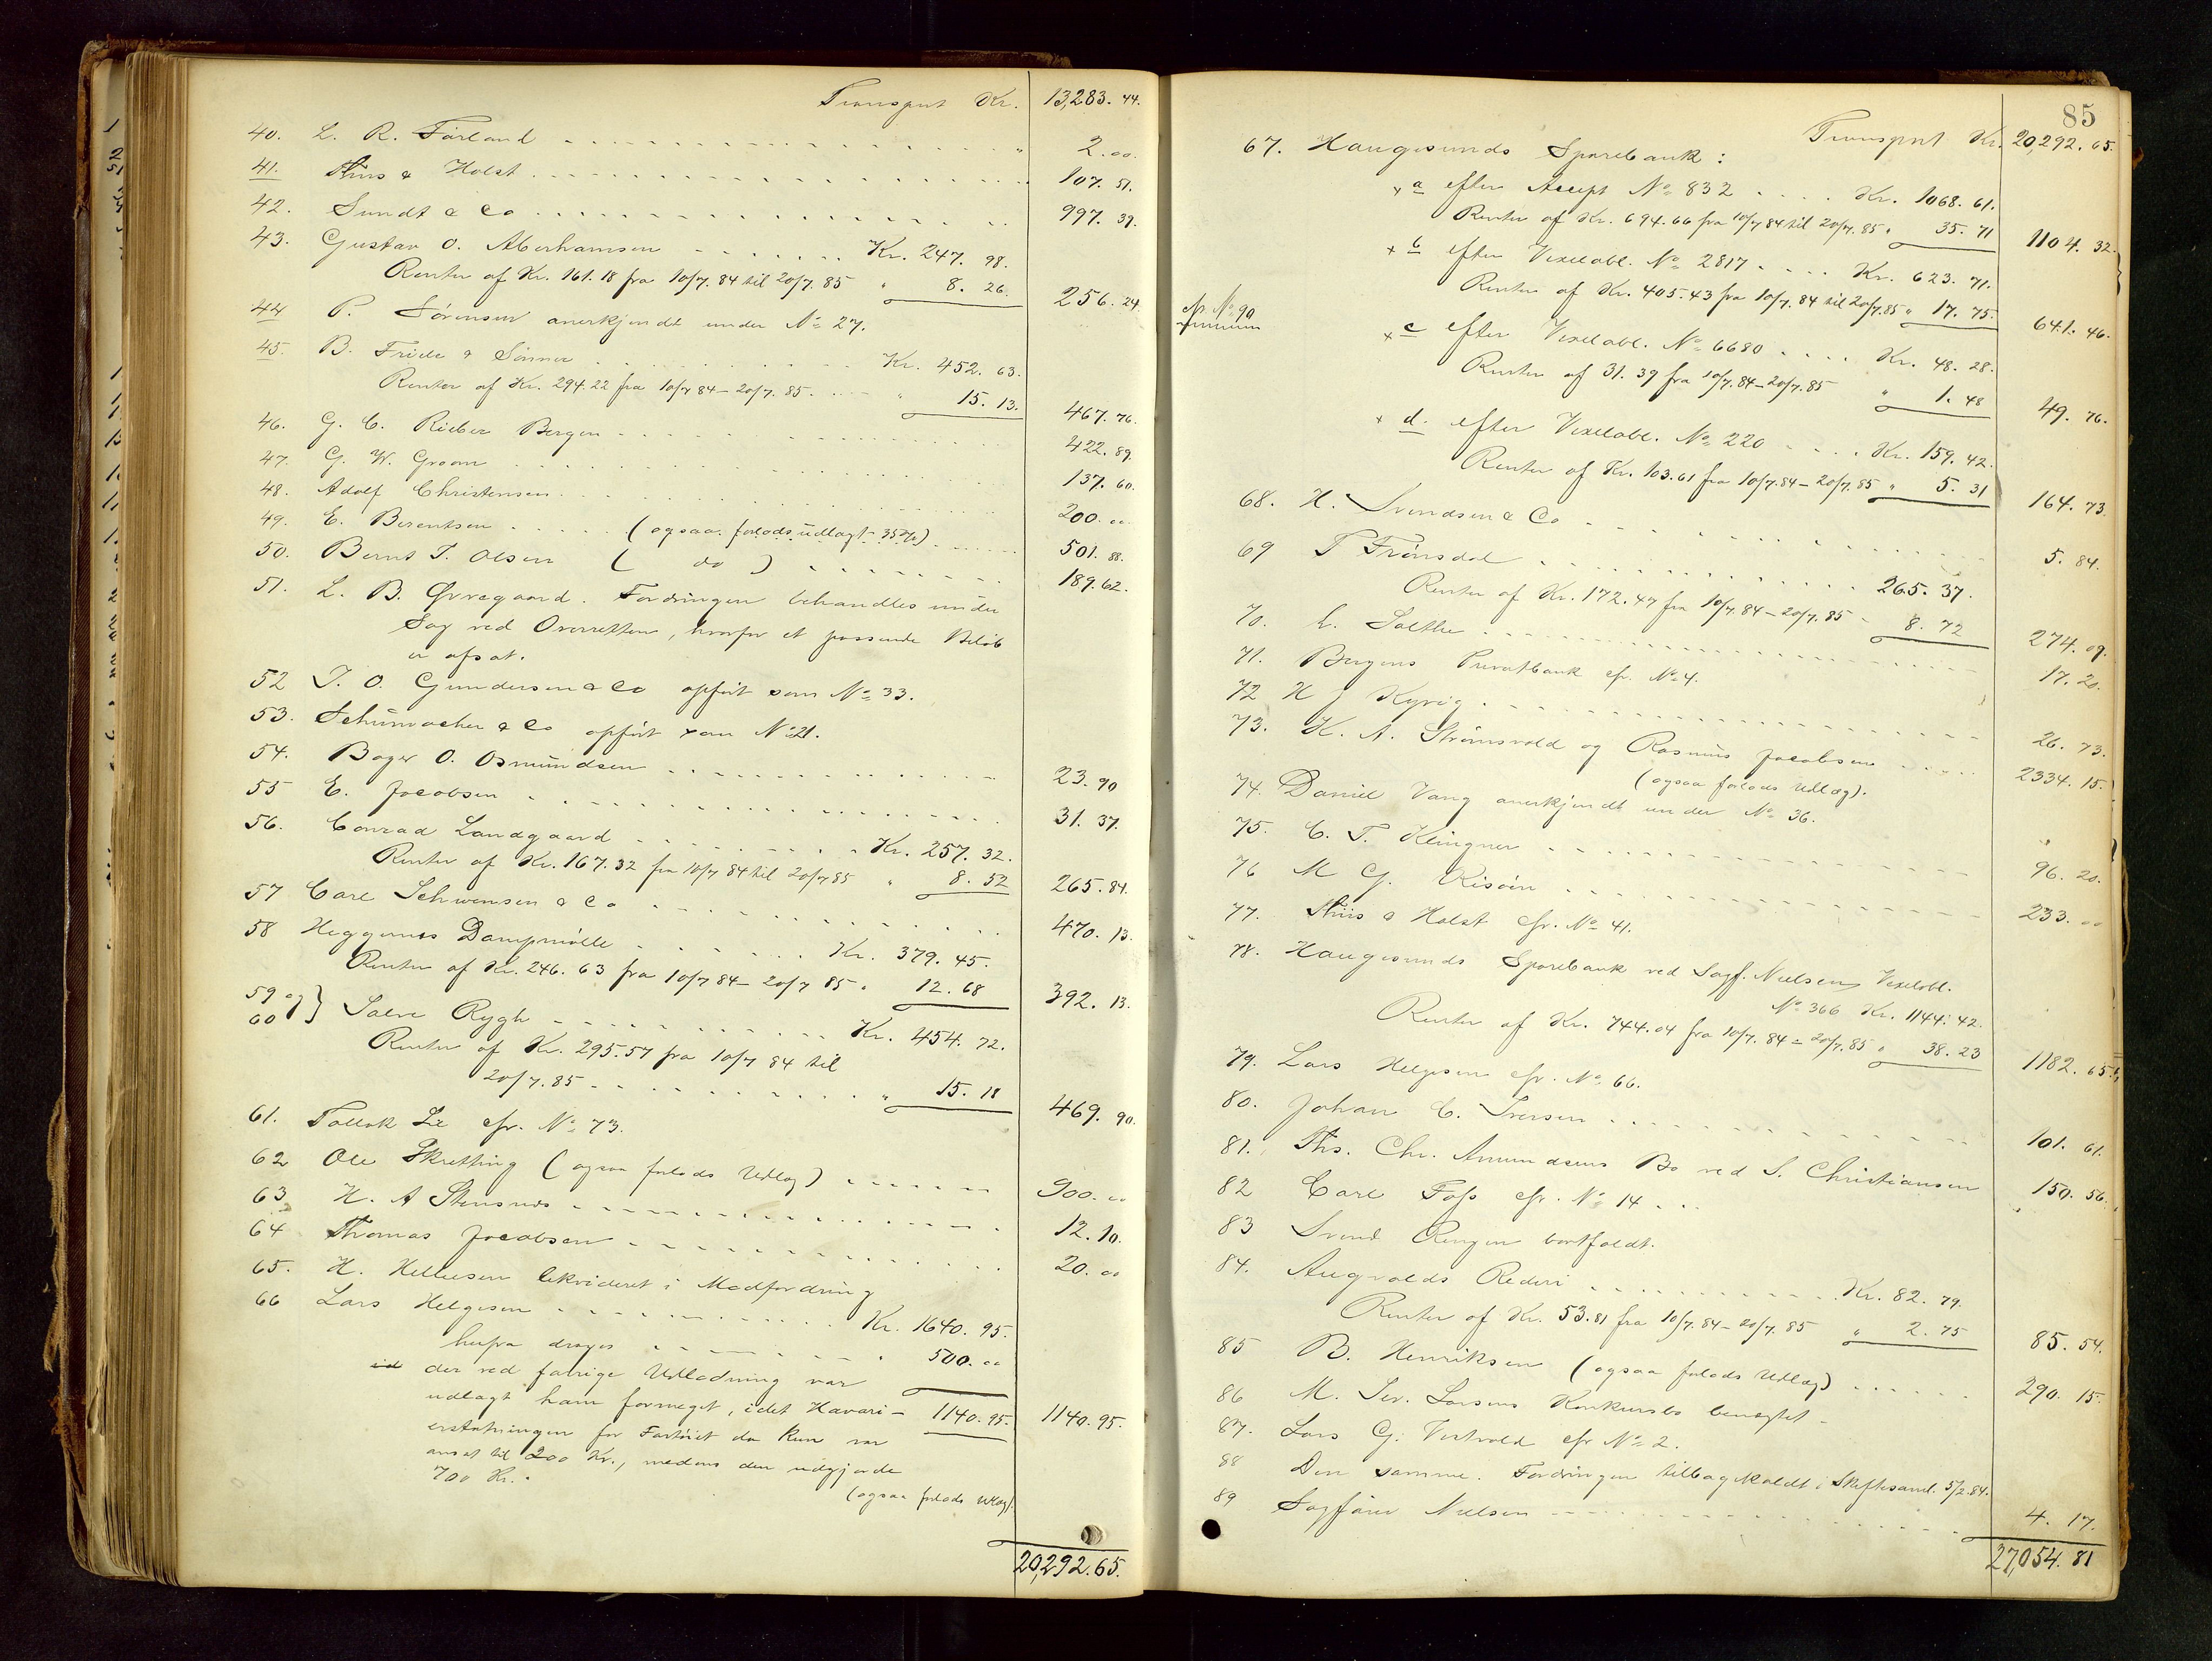 Transport Kr. 13,283. 44.
40. L. R. Førland " 2. 00.
41. Thiis & Holst 107. 51.
42. Sundt & Co 997. 39.
43. Gustav O. Aberhamsen Kr. 247. 98.
Renter af Kr. 161.18 fra 10/7. 84 til 20/7. 85 " 8. 26. 256. 24
44 P. Sørensen anerkjendt under No 27.
45. B. Friele & Sønner Kr. 452. 63.
Renter af Kr. 294.22 fra 10/7 84 – 20/7. 85. " 15. 13. 467. 76.
46. G. C. Rieber Bergen 422. 89.
47. G. W. Groom 137. 60.
48. Adolf Christensen 200. 00
49. E. Berentsen (ogsaa forlods udlagt 35%) 501. 88.
50. Bernt T. Olsen ( do ) 189. 62.
51. L. B. Øvregaard. Fordringen behandles under
Sag ved Overretten, hvorfor et passende Beløb
er afsat.
52 T. O. Gundersen & Co opført som No 33.
53. Schumacher & Co opført som No 21.
54. Boger O. Osmundsen 23. 90
55 E. Jacobsen 31. 37.
56. Conrad Landgaard Kr. 257. 32.
Renter af Kr. 167.32 fra 10/7 84 til 20/7 85 " 8. 52 265. 84.
57 Carl Schwensen & Co 470. 13.
58 Heggernes Dampmølle Kr. 379. 45.
Renter af Kr. 246. 63 fra 10/7 84 – 20/7 85 " 12. 68 392. 13.
59 og } Salve Rygh Kr. 454. 72.
60
Renter af Kr. 295.57 fra 10/7 84 til
20/7. 85 " 15. 18 469. 90.
61. Tollak Lie cfr. No 73.
62 Ole Skretting (ogsaa forlods Udlæg) 900. 00
63 H. A Stensnes 12. 10.
64 Thomas Jacobsen 20. 00
65. H. Helliesen likvideret i Modfordring
66 Lars Helgesen Kr. 1640. 95.
herfra drages 500. 00
der ved forrige Udlodning var
udlagt ham formeget, idet Havari- 1140. 95. 1140. 95.
erstatningen for Fartøiet da kun var
ansat til 200 Kr., medens den udgjorde
700 Kr. (ogsaa forlods Udlæg).
20,292. 65.
85
Transport Kr. 20,292. 65.
67. Haugesunds Sparebank:
x a efter Accept No 832 Kr. 1068. 61.
Renter af Kr. 694.66 fra 10/7 84 til 20/7. 85 " 35. 71 1104. 32.
x b efter Vexelobl. No 2817 Kr. 623. 71.
Renter af Kr. 405.43 fra 10/7. 84 til 20/7. 85 " 17. 75. 641. 46.
cfr. No 90
x c efter Vexelobl. No 6680 Kr. 48. 28.
Renter af 31. 39 fra 10/7. 84 – 20/7. 85 " 1. 48 49. 76.
x d. efter Vexelobl. No 220 Kr. 159. 42.
Renter af Kr. 103.61 fra 10/7. 84 – 20/7. 85 " 5. 31 164. 73.
68. H. Svendsen & Co 5. 84.
69 T Frønsdal 265. 37.
Renter af Kr. 172. 47 fra 10/7. 84 – 20/7. 85 - 8. 72 274. 09.
70. L. Salthe 17. 20.
71. Bergens Privatbank cfr. No 4.
72 H J Kyvig 26. 73.
73. K. A. Strømsvold og Rasmus Jacobsen 2334. 15.
(ogsaa forlods Udlæg).
74. Daniel Vang anerkjendt under No 36.
75. C. T. Klingner 96. 20.
76 M G. Risøen 233. 00
77. Thiis & Holst cfr. No 41.
78. Haugesunds Sparebank ved Sagf. Nielsen, Vexelobl.
No 366 Kr. 1144. 42.
Renter af Kr. 744.04 fra 10/7. 84 – 20/7. 85 " 38. 23 1182. 65.
79. Lars Helgesen cfr. No 66.
80. Johan C. Iversen 101. 61.
81. Ths. Chr. Amundsens Bo ved S. Christiansen 150. 56.
82 Carl Foss cfr. No 14
83 Svend Ringen bortfaldt.
84. Augvalds Rederi Kr. 82. 79.
Renter af Kr. 53. 81 fra 10/7. 84 – 20/7. 85 " 2. 75 85. 54.
85 B. Henriksen (ogsaa forlods Udlæg) 290. 15.
86 M. Sev. Larsens Konkursbo benægtet -
87. Lars G. Vestvold cfr No 2.
88 Den samme. Fordringen tilbagekaldt i Skiftesaml. 5/2. 84.
89 Sagfører Nielsen 4. 17.
27,054. 81